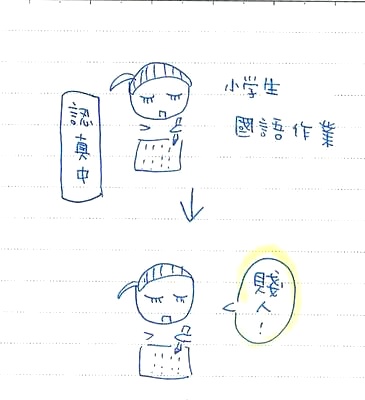 小学生
國語作業
認真中
賤人!